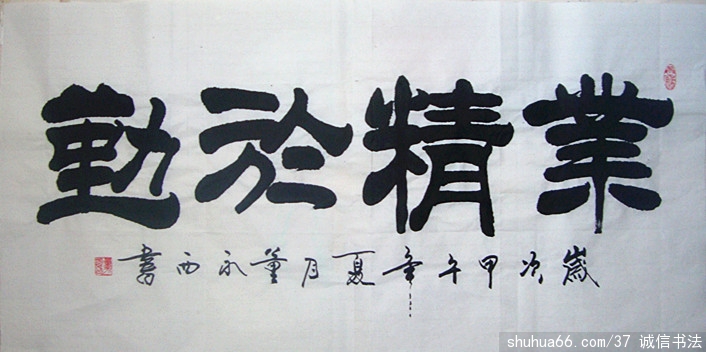 業精於勤
歲次甲午年夏月董永西書
shuhua66.com/37 诚信书法